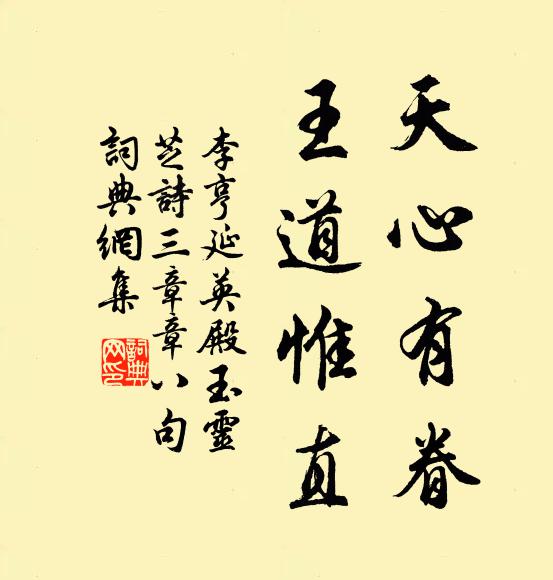 天心有眷
王道惟直
李亨延英殿玉靈
芝詩三章章八句
詞典網集
詞典網印